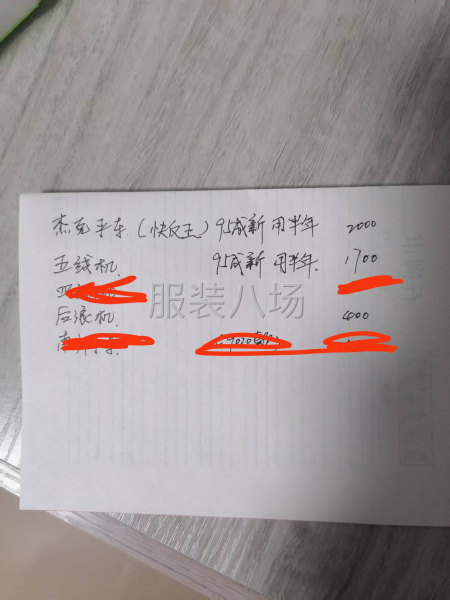 杰克平车（快反王）95成新 用半年 2000
五线机. 95成新 用半年. 1700
服装八场
后滚机. 4000